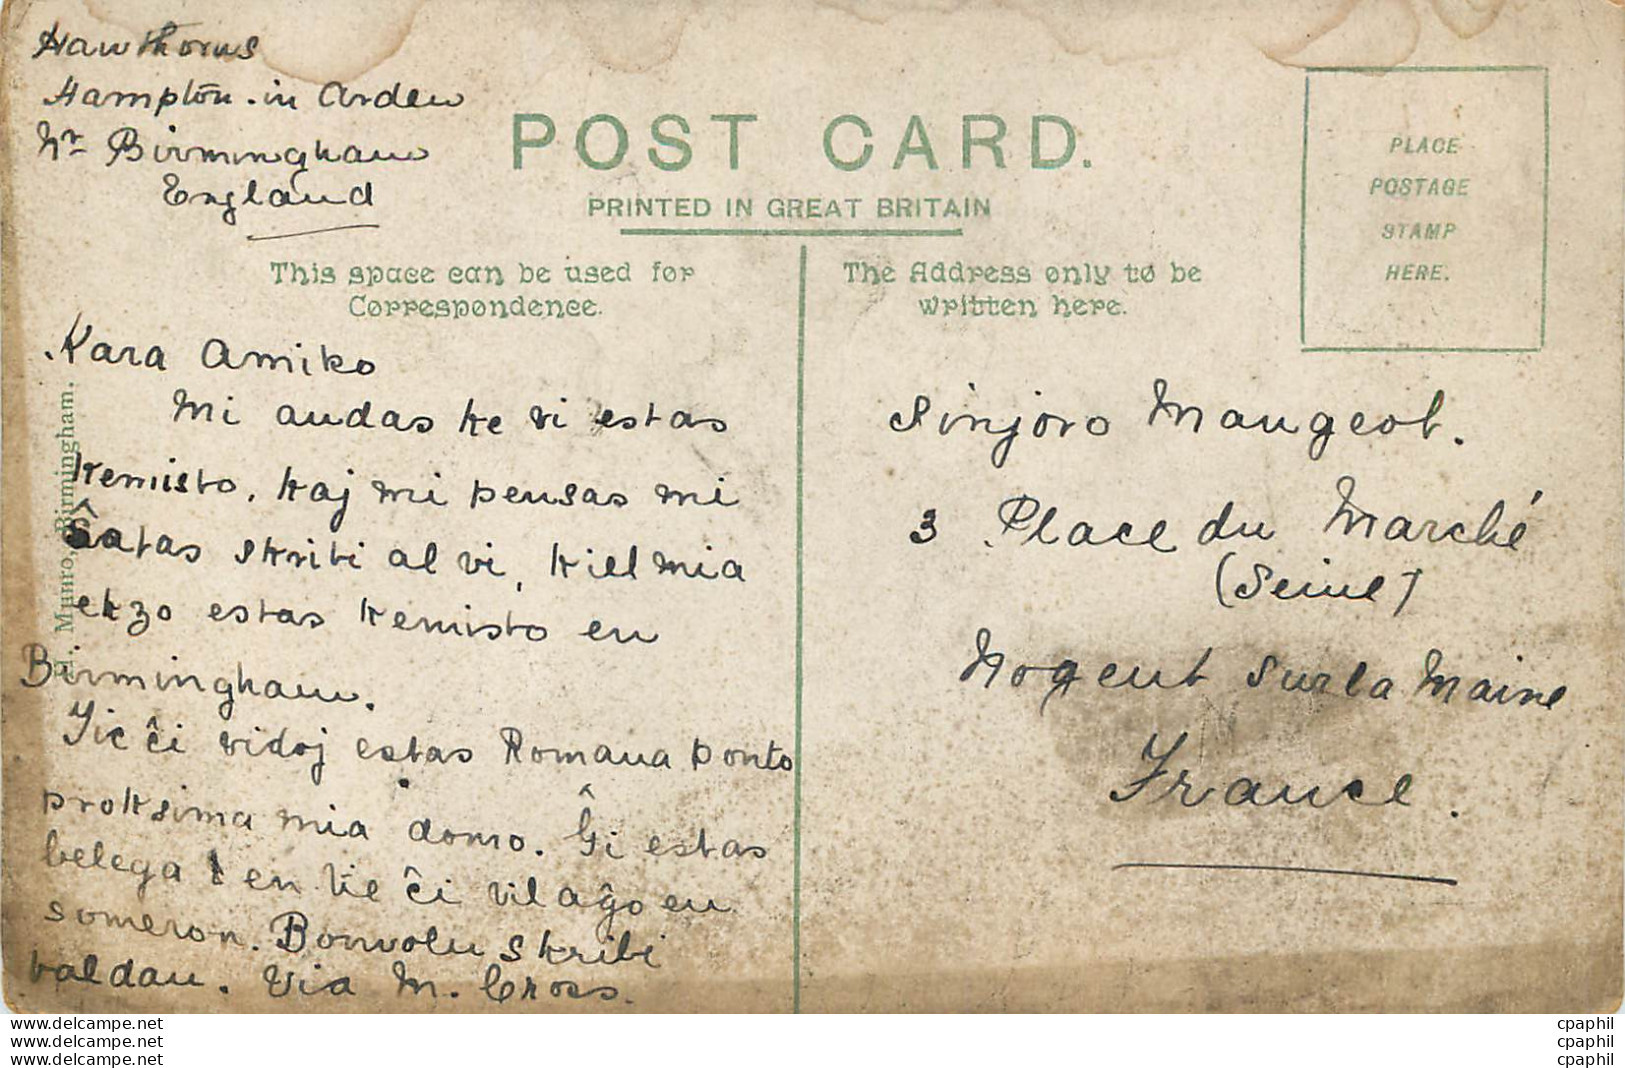 Hawthorns
Hampton-in Arden
Nr Birmingham
England
POST CARD.
PRINTED IN GREAT BRITAIN
This space can be used for
Correspondence.
The Address only to be
written here.
PLACE
POSTAGE
STAMP
HERE.
H. Munro, Birmingham.
Kara Amiko
Mi audas ke vi estas
kemisto, kaj mi pensas mi
ŝatas skribi al vi, kiel mia
ekzo estas kemisto en
Birmingham.
Tie ĉi vidoj estas Romana ponto
proksima mia domo. Ĝi estas
belega en tie ĉi vilaĝo en
someron. Bonvolu skribi
baldau. Via M. Cross.
Sinjoro Maugeot.
3 Place du Marché
(Seine)
Nogent sur la Maine
France.
www.delcampe.net
www.delcampe.net
www.delcampe.net
cpaphil
cpaphil
cpaphil